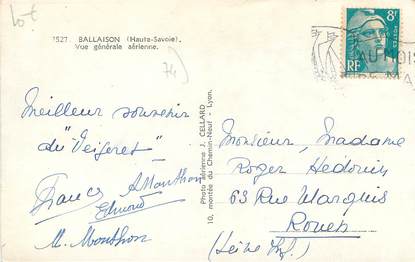 Lot
1527. BALLAISON (Haute-Savoie).
Vue générale aérienne.
74)
8F
RF
AU MOIS
DE MA
Meilleur souvenir
du "Veigeret"
France AMonthon
Edmond
M. Monthon
Photo aérienne J. CELLARD
10, montée du Chemin-Neuf - Lyon.
Monsieur, Madame
Roger Hedouin
63 Rue Marquis
Rouen
(Seine Inf.)